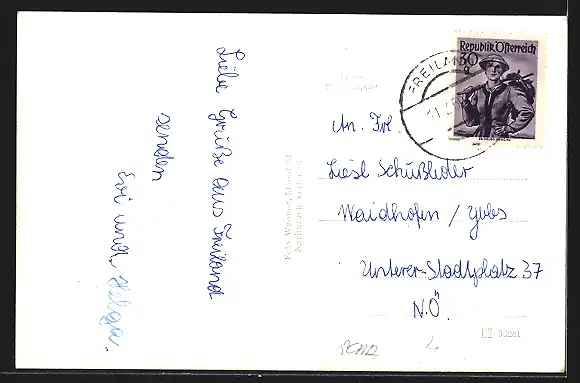 Liebe Grüße aus Freiland
senden
Evi und Helga.
Republik Österreich
30
g
FREILAND
An. Frl.
Liesl Schußleder
Waidhofen / Ybbs
Unterer-Stadtplatz 37
N.Ö.
Nachdruck verboten